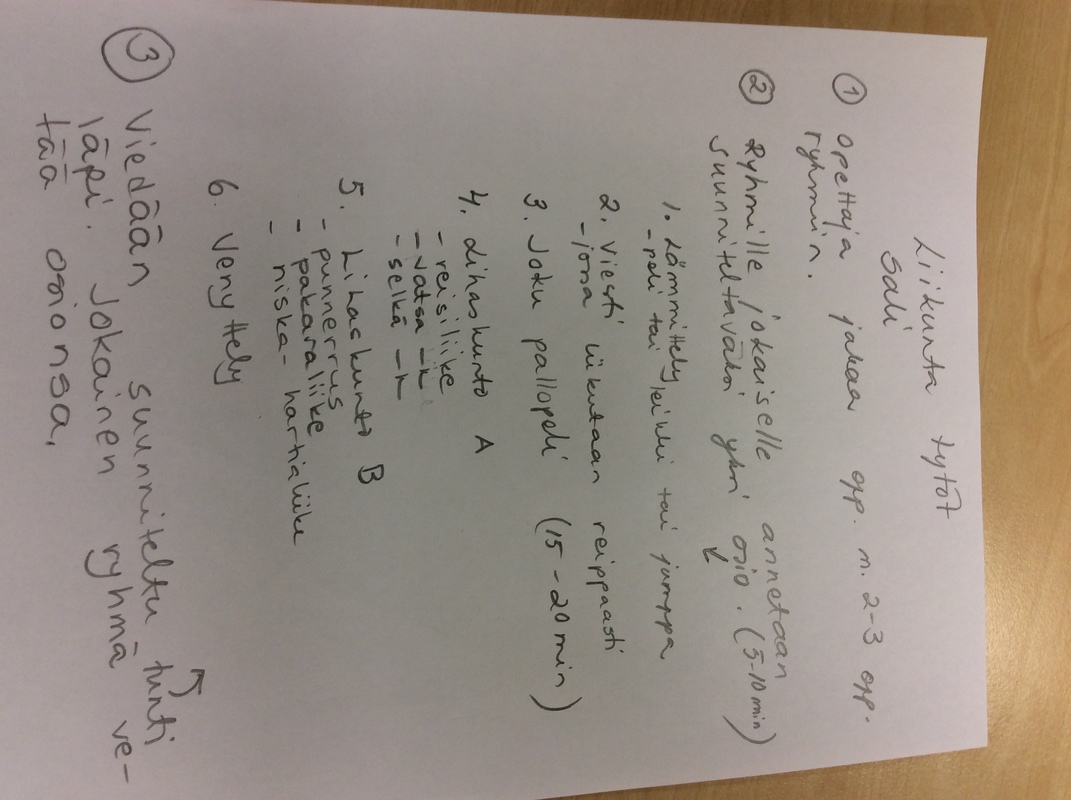 Liikunta tytöt
Sali
① Opettaja jakaa opp. n. 2-3 opp.
ryhmiin.
② Ryhmille / jokaiselle annetaan
suunniteltavaksi yksi osio. (5-10 min)
1. Lämmittely
- peli tai leikki tai jumppa
2. Viesti
- jossa liikutaan reippaasti
3. Joku pallopeli (15-20 min)
4. Lihaskunto A
- reisiliike
- vatsa -"-
- selkä -"-
5. Lihaskunto B
- punnerrus
- pakaraliike
- niska- hartialiike
6. Venyttely
③ Viedään suunniteltu tunti
läpi. Jokainen ryhmä ve-
tää osionsa.